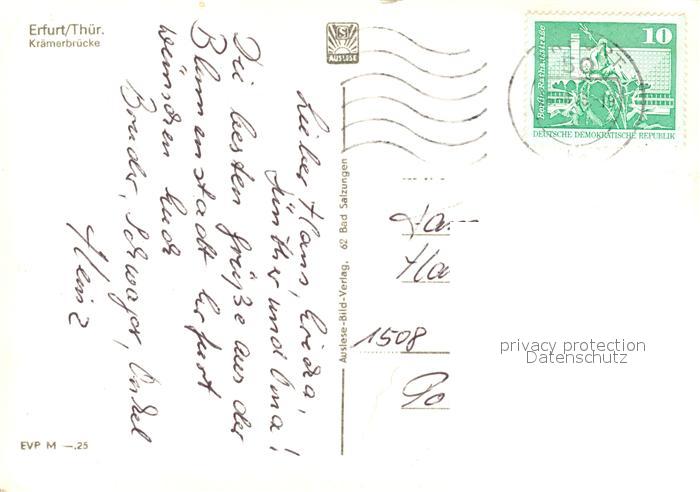 Erfurt/Thür.
Krämerbrücke
Lieber Hans, Frieda,
Günther und Oma!
Die besten Grüße aus der
Blumenstadt Erfurt
wünschen Euch
Bruder, Schwager, Onkel
Heinz
EVP M —.25
AUSLESE
Auslese-Bild-Verlag, 62 Bad Salzungen
10
Berlin, Rathausstraße
DEUTSCHE DEMOKRATISCHE REPUBLIK
50
1508
privacy protection
Datenschutz